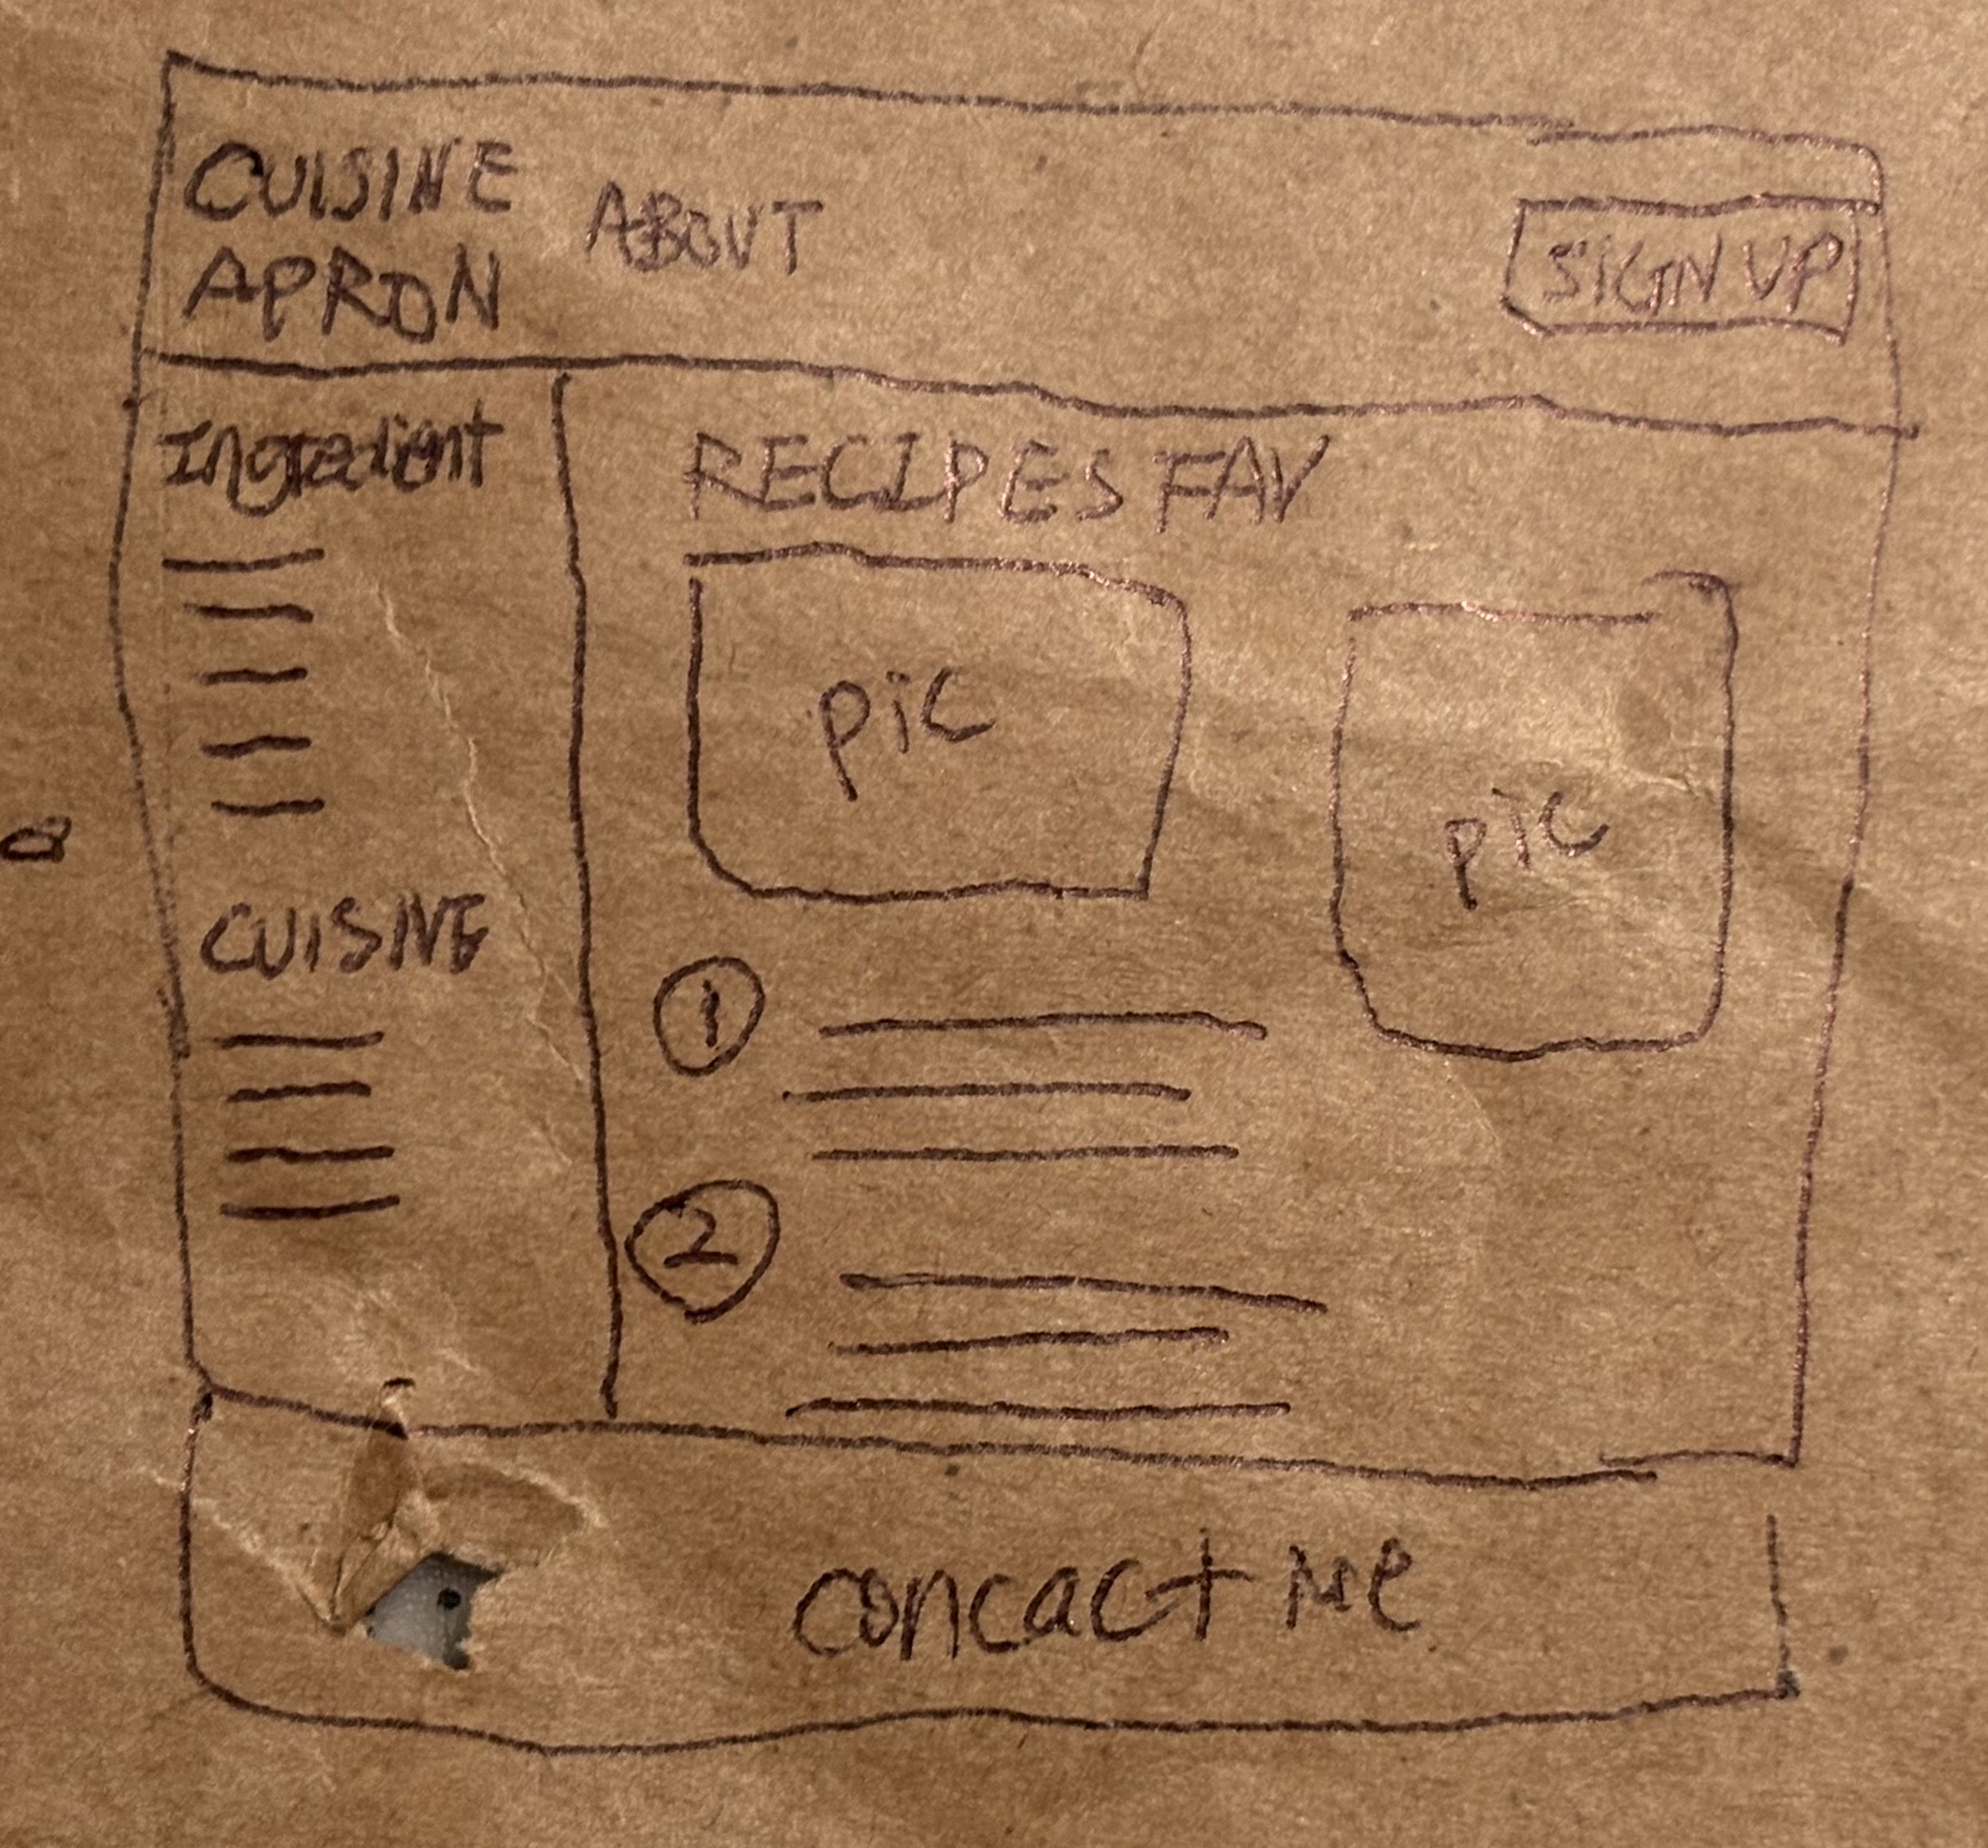 CUISINE
APRON
ABOUT
SIGN UP
Ingredient
CUISINE
RECIPES FAV
pic
pic
1
2
concact Me